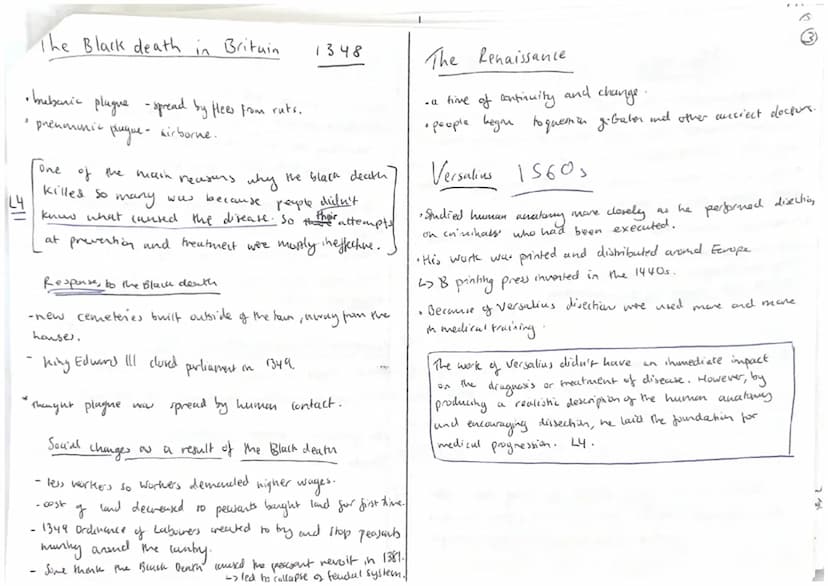 The Black death in Britain 1348
• bubonic plague - spread by flees from rats.
• pneumonic plague - airborne.
L4
One of the main reasons why the black death
killed so many was because people didn't
know what caused the disease. So their attempts
at prevention and treatment were mostly ineffective.
Responses to the Black death
- new cemeteries built outside of the town, away from the
houses.
- King Edward III closed parliament in 1349.
* Thought plague was spread by human contact.
Social changes as a result of the Black death
- less workers so workers demanded higher wages.
- cost of land decreased so peasants bought land for first time.
- 1349 Ordinance of Labourers created to try and stop peasants
moving around the country.
- Some think the Black Death caused the peasant revolt in 1381.
↳ led to collapse of feudal system.
3
The Renaissance
• a time of continuity and change.
• people began to question and other ancient doctors.
Versalius 1560s
• Studied human anatomy more closely as he performed disection
on who had been executed.
• His work was printed and distributed around Europe
↳ B printing press invented in the 1440s.
• Because of Versalius disection were used more and more
in medical training.
The work of Versalius didn't have an immediate impact
on the diagnosis or treatment of disease. However, by
producing a realistic description of the human anatomy
and encouraging dissection, he laid the foundation for
medical progression. L4.